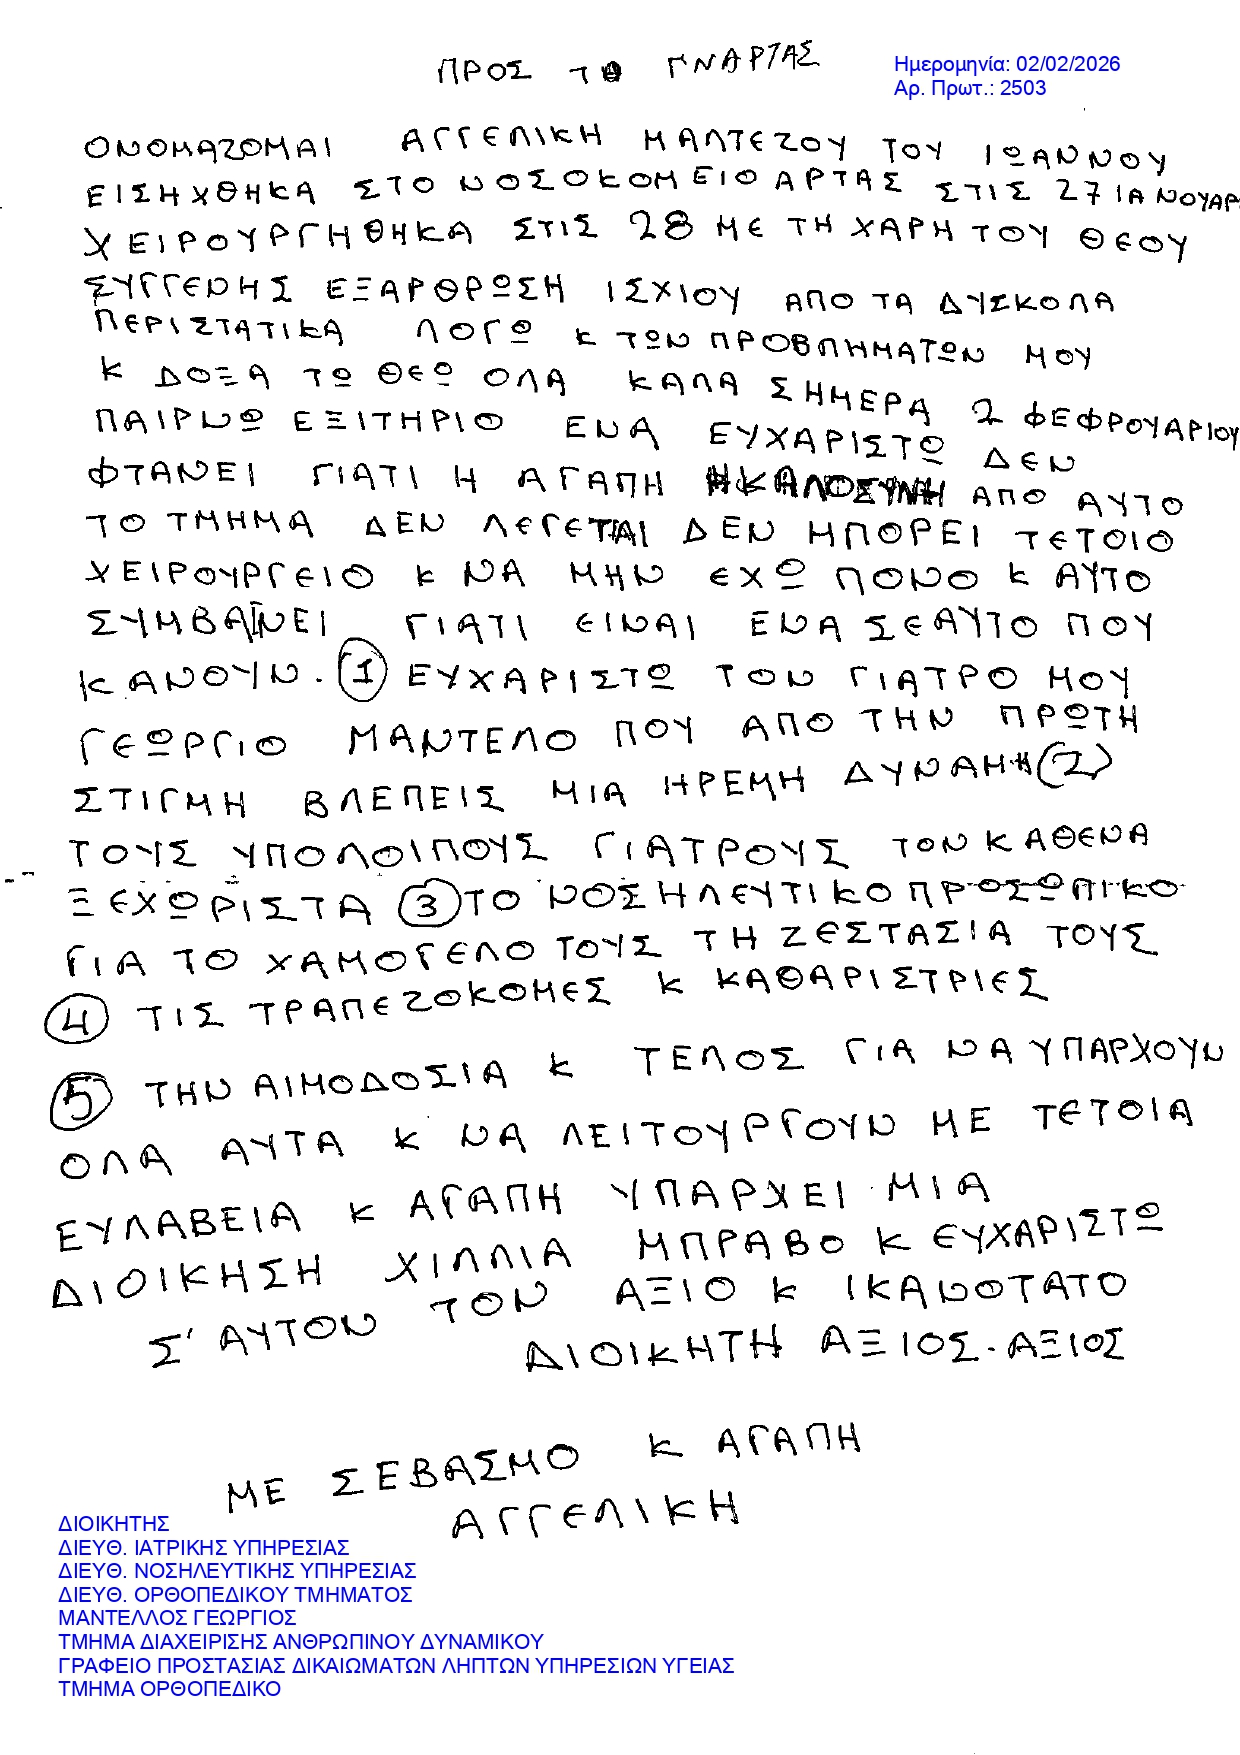 ΠΡΟΣ ΤΟ ΓΝΑΡΤΑΣ
Ημερομηνία: 02/02/2026
Αρ. Πρωτ.: 2503
ΟΝΟΜΑΖΟΜΑΙ ΑΓΓΕΛΙΚΗ ΜΑΛΤΕΖΟΥ ΤΟΥ ΙΩΑΝΝΟΥ
ΕΙΣΗΧΘΗΚΑ ΣΤΟ ΝΟΣΟΚΟΜΕΙΟ ΑΡΤΑΣ ΣΤΙΣ 27 ΙΑΝΟΥΑΡ
ΧΕΙΡΟΥΡΓΗΘΗΚΑ ΣΤΙΣ 28 ΜΕ ΤΗ ΧΑΡΗ ΤΟΥ ΘΕΟΥ
ΣΥΓΓΕΝΗΣ ΕΞΑΡΘΡΩΣΗ ΙΣΧΙΟΥ ΑΠΟ ΤΑ ΔΥΣΚΟΛΑ
ΠΕΡΙΣΤΑΤΙΚΑ ΛΟΓΩ Κ ΤΩΝ ΠΡΟΒΛΗΜΑΤΩΝ ΜΟΥ
Κ ΔΟΞΑ ΤΩ ΘΕΩ ΟΛΑ ΚΑΛΑ ΣΗΜΕΡΑ 2 ΦΕΦΡΟΥΑΡΙΟΥ
ΠΑΙΡΝΩ ΕΞΙΤΗΡΙΟ ΕΝΑ ΕΥΧΑΡΙΣΤΩ ΔΕΝ
ΦΤΑΝΕΙ ΓΙΑΤΙ Η ΑΓΑΠΗ Η ΚΑΛΟΣΥΝΗ ΑΠΟ ΑΥΤΟ
ΤΟ ΤΜΗΜΑ ΔΕΝ ΛΕΓΕΤΑΙ ΔΕΝ ΜΠΟΡΕΙ ΤΕΤΟΙΟ
ΧΕΙΡΟΥΡΓΕΙΟ Κ ΝΑ ΜΗΝ ΕΧΩ ΠΟΝΟ Κ ΑΥΤΟ
ΣΥΜΒΑΙΝΕΙ ΓΙΑΤΙ ΕΙΝΑΙ ΕΝΑ ΣΕ ΑΥΤΟ ΠΟΥ
ΚΑΝΟΥΝ. 1 ΕΥΧΑΡΙΣΤΩ ΤΟΝ ΓΙΑΤΡΟ ΜΟΥ
ΓΕΩΡΓΙΟ ΜΑΝΤΕΛΟ ΠΟΥ ΑΠΟ ΤΗΝ ΠΡΩΤΗ
ΣΤΙΓΜΗ ΒΛΕΠΕΙΣ ΜΙΑ ΗΡΕΜΗ ΔΥΝΑΜΗ (2)
ΤΟΥΣ ΥΠΟΛΟΙΠΟΥΣ ΓΙΑΤΡΟΥΣ ΤΟΝ ΚΑΘΕΝΑ
ΞΕΧΩΡΙΣΤΑ 3 ΤΟ ΝΟΣΗΛΕΥΤΙΚΟ ΠΡΟΣΩΠΙΚΟ
ΓΙΑ ΤΟ ΧΑΜΟΓΕΛΟ ΤΟΥΣ ΤΗ ΖΕΣΤΑΣΙΑ ΤΟΥΣ
4 ΤΙΣ ΤΡΑΠΕΖΟΚΟΜΕΣ Κ ΚΑΘΑΡΙΣΤΡΙΕΣ
5 ΤΗΝ ΑΙΜΟΔΟΣΙΑ Κ ΤΕΛΟΣ ΓΙΑ ΝΑ ΥΠΑΡΧΟΥΝ
ΟΛΑ ΑΥΤΑ Κ ΝΑ ΛΕΙΤΟΥΡΓΟΥΝ ΜΕ ΤΕΤΟΙΑ
ΕΥΛΑΒΕΙΑ Κ ΑΓΑΠΗ ΥΠΑΡΧΕΙ ΜΙΑ
ΔΙΟΙΚΗΣΗ ΧΙΛΛΙΑ ΜΠΡΑΒΟ Κ ΕΥΧΑΡΙΣΤΩ
Σ' ΑΥΤΟΝ ΤΟΝ ΑΞΙΟ Κ ΙΚΑΝΟΤΑΤΟ
ΔΙΟΙΚΗΤΗ ΑΞΙΟΣ. ΑΞΙΟΣ
ΜΕ ΣΕΒΑΣΜΟ Κ ΑΓΑΠΗ
ΑΓΓΕΛΙΚΗ
ΔΙΟΙΚΗΤΗΣ
ΔΙΕΥΘ. ΙΑΤΡΙΚΗΣ ΥΠΗΡΕΣΙΑΣ
ΔΙΕΥΘ. ΝΟΣΗΛΕΥΤΙΚΗΣ ΥΠΗΡΕΣΙΑΣ
ΔΙΕΥΘ. ΟΡΘΟΠΕΔΙΚΟΥ ΤΜΗΜΑΤΟΣ
ΜΑΝΤΕΛΛΟΣ ΓΕΩΡΓΙΟΣ
ΤΜΗΜΑ ΔΙΑΧΕΙΡΙΣΗΣ ΑΝΘΡΩΠΙΝΟΥ ΔΥΝΑΜΙΚΟΥ
ΓΡΑΦΕΙΟ ΠΡΟΣΤΑΣΙΑΣ ΔΙΚΑΙΩΜΑΤΩΝ ΛΗΠΤΩΝ ΥΠΗΡΕΣΙΩΝ ΥΓΕΙΑΣ
ΤΜΗΜΑ ΟΡΘΟΠΕΔΙΚΟ